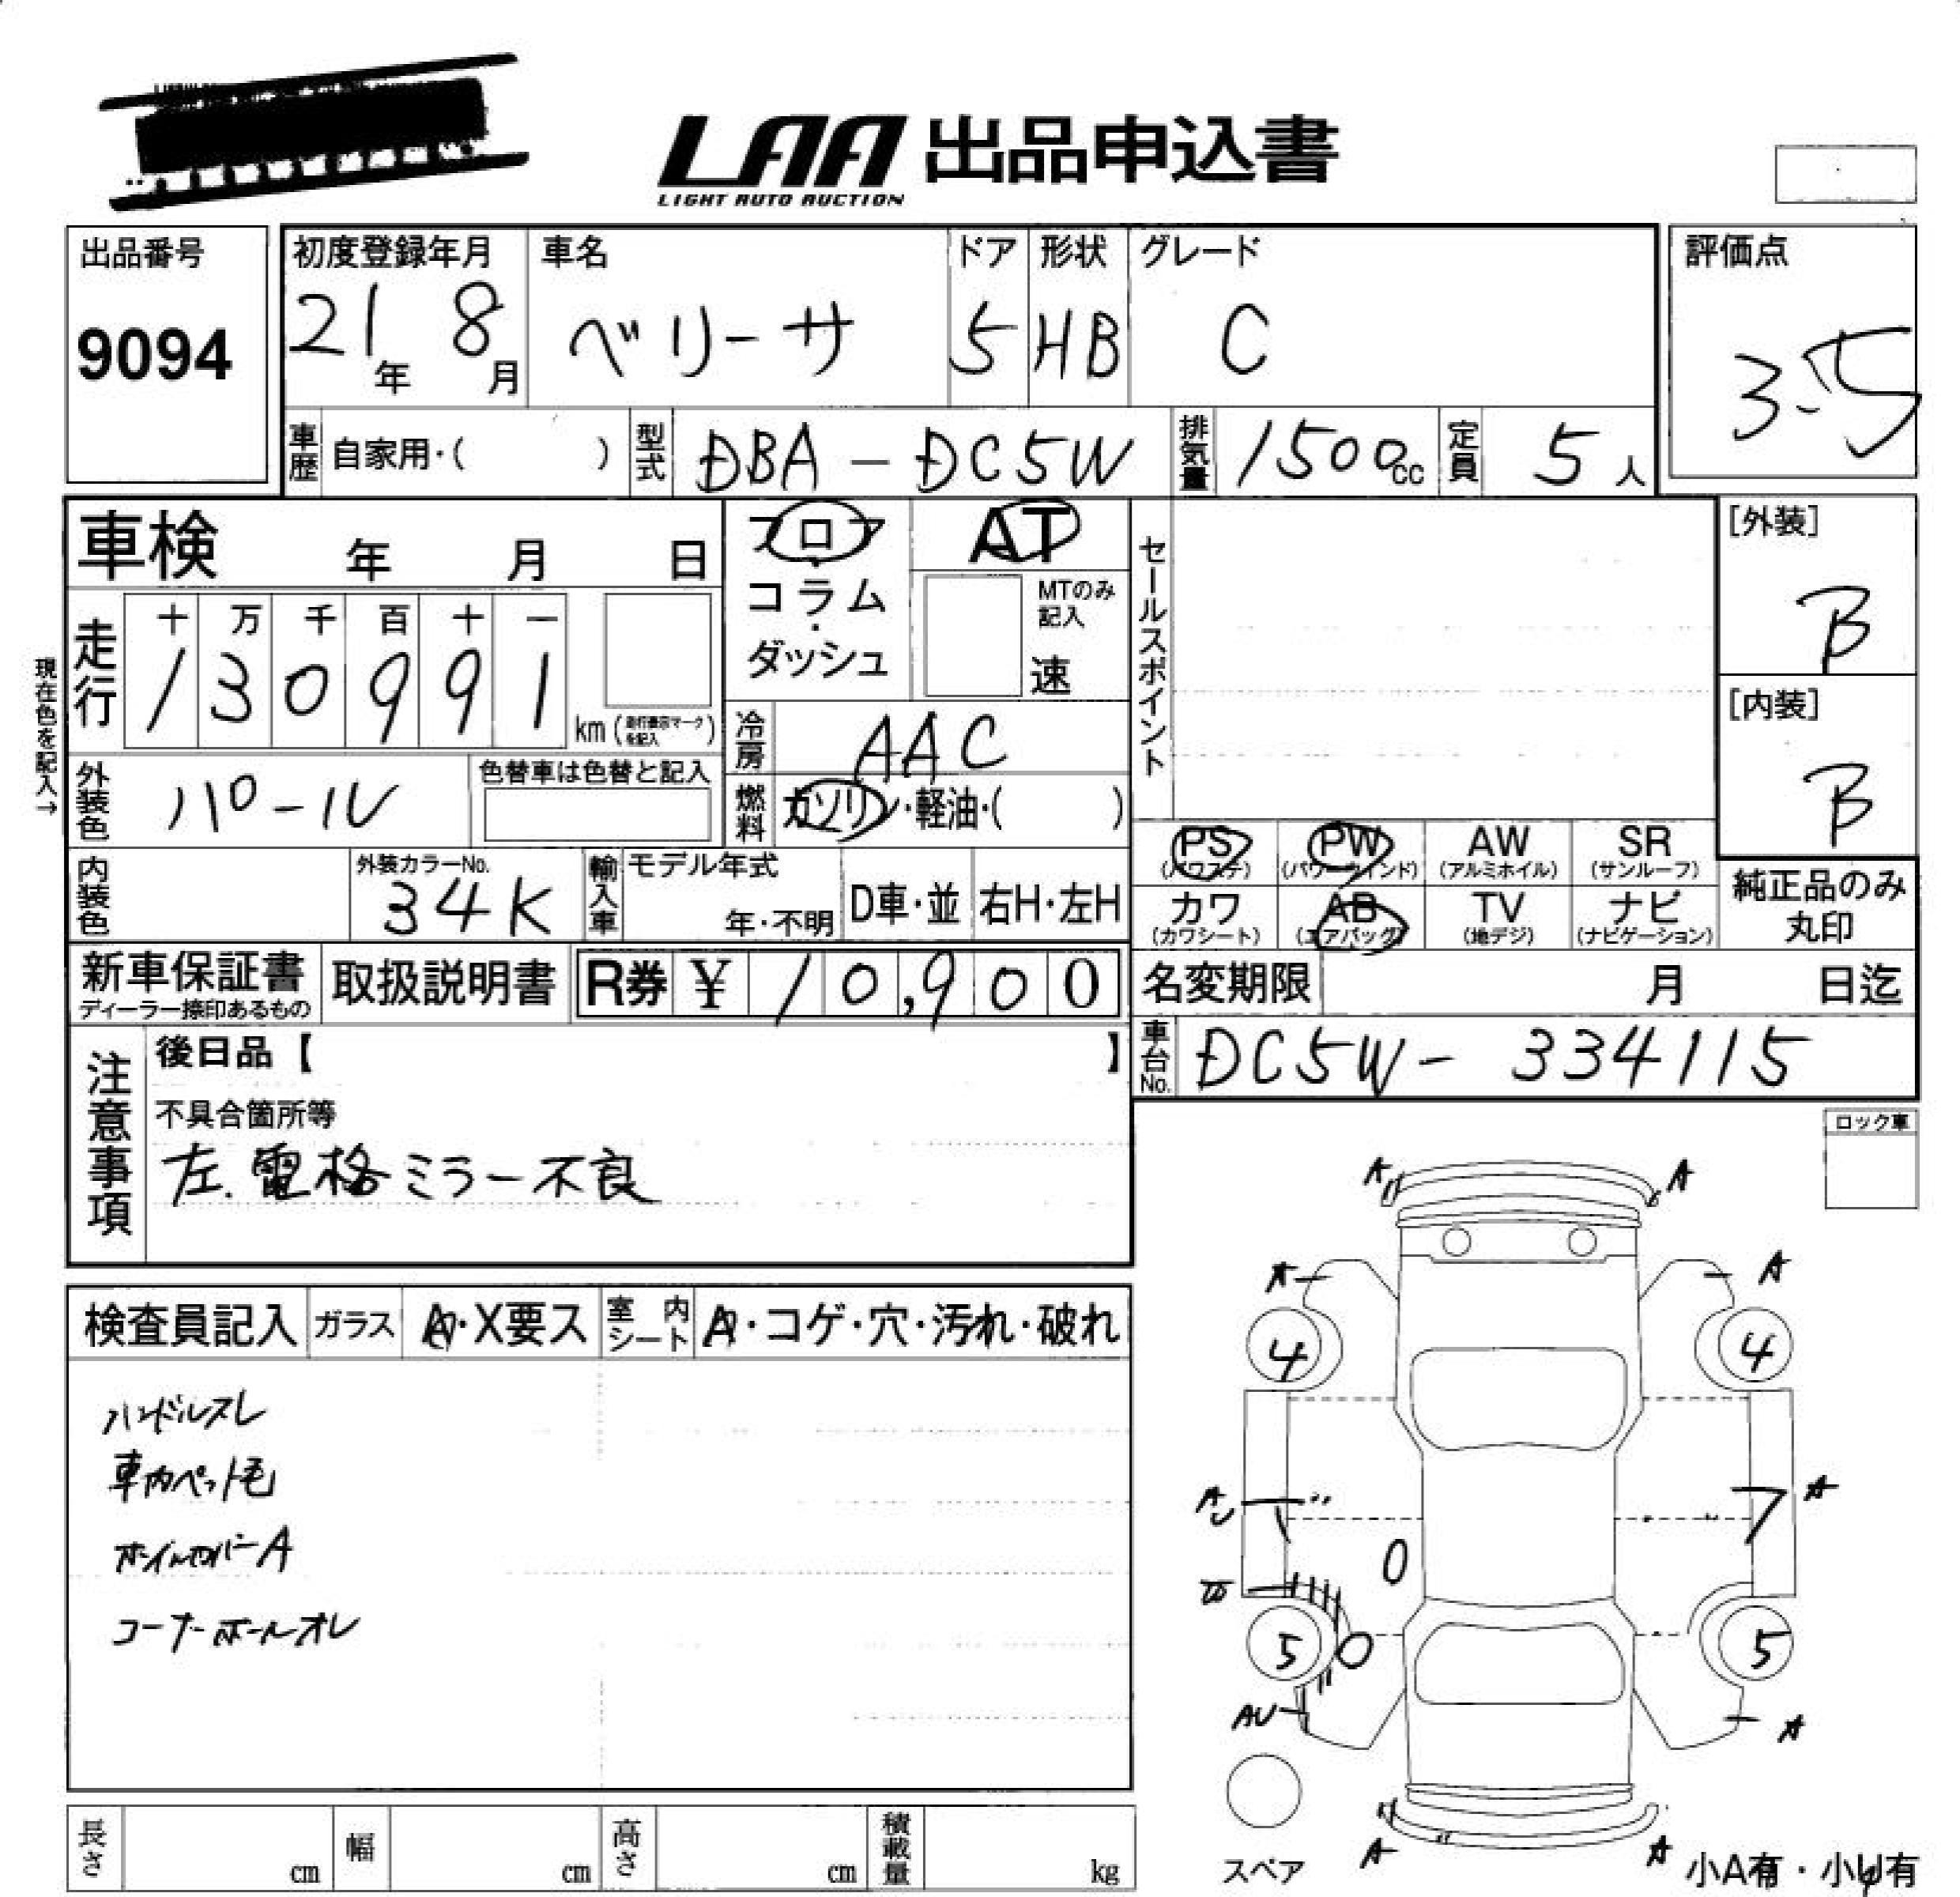 LAA 出品申込書
LIGHT AUTO AUCTION
出品番号
9094
初度登録年月
21年 8月
車名
ベリーサ
ドア
5
形状
HB
グレード
C
評価点
3.5
車歴 自家用・( )
型式 DBA-DC5W
排気量 1500cc
定員 5人
車検 年 月 日
フロア・コラム・ダッシュ
AT
MTのみ記入
速
セールスポイント
[外装]
B
[内装]
B
現在色を記入→
走行 十 万 千 百 十 一
1 3 0 9 9 1 km (走行表示マークを記入)
冷房 AAC
外装色 パール
色替車は色替と記入
燃料 ガソリン・軽油・( )
内装色
外装カラーNo.
34K
輸入車 モデル年式
年・不明
D車・並
右H・左H
PS (パワステ)
PW (パワーウインド)
AW (アルミホイル)
SR (サンルーフ)
カワ (カワシート)
AB (エアバッグ)
TV (地デジ)
ナビ (ナビゲーション)
純正品のみ丸印
新車保証書
ディーラー捺印あるもの
取扱説明書
R券 ¥ 10,900
名変期限 月 日迄
車台No. DC5W-334115
注意事項
後日品【 】
不具合箇所等
左.電格ミラー不良
ロック車
検査員記入
ガラス A・X要ス
室内シート A・コゲ・穴・汚れ・破れ
ハンドルスレ
車内ペット毛
ホイルカバーA
コーナーポールオレ
A A
A A
4 4
A A
U
0
5 0 5
AU A
A A
スペア
小A有・小U有
長さ cm
幅 cm
高さ cm
積載量 kg